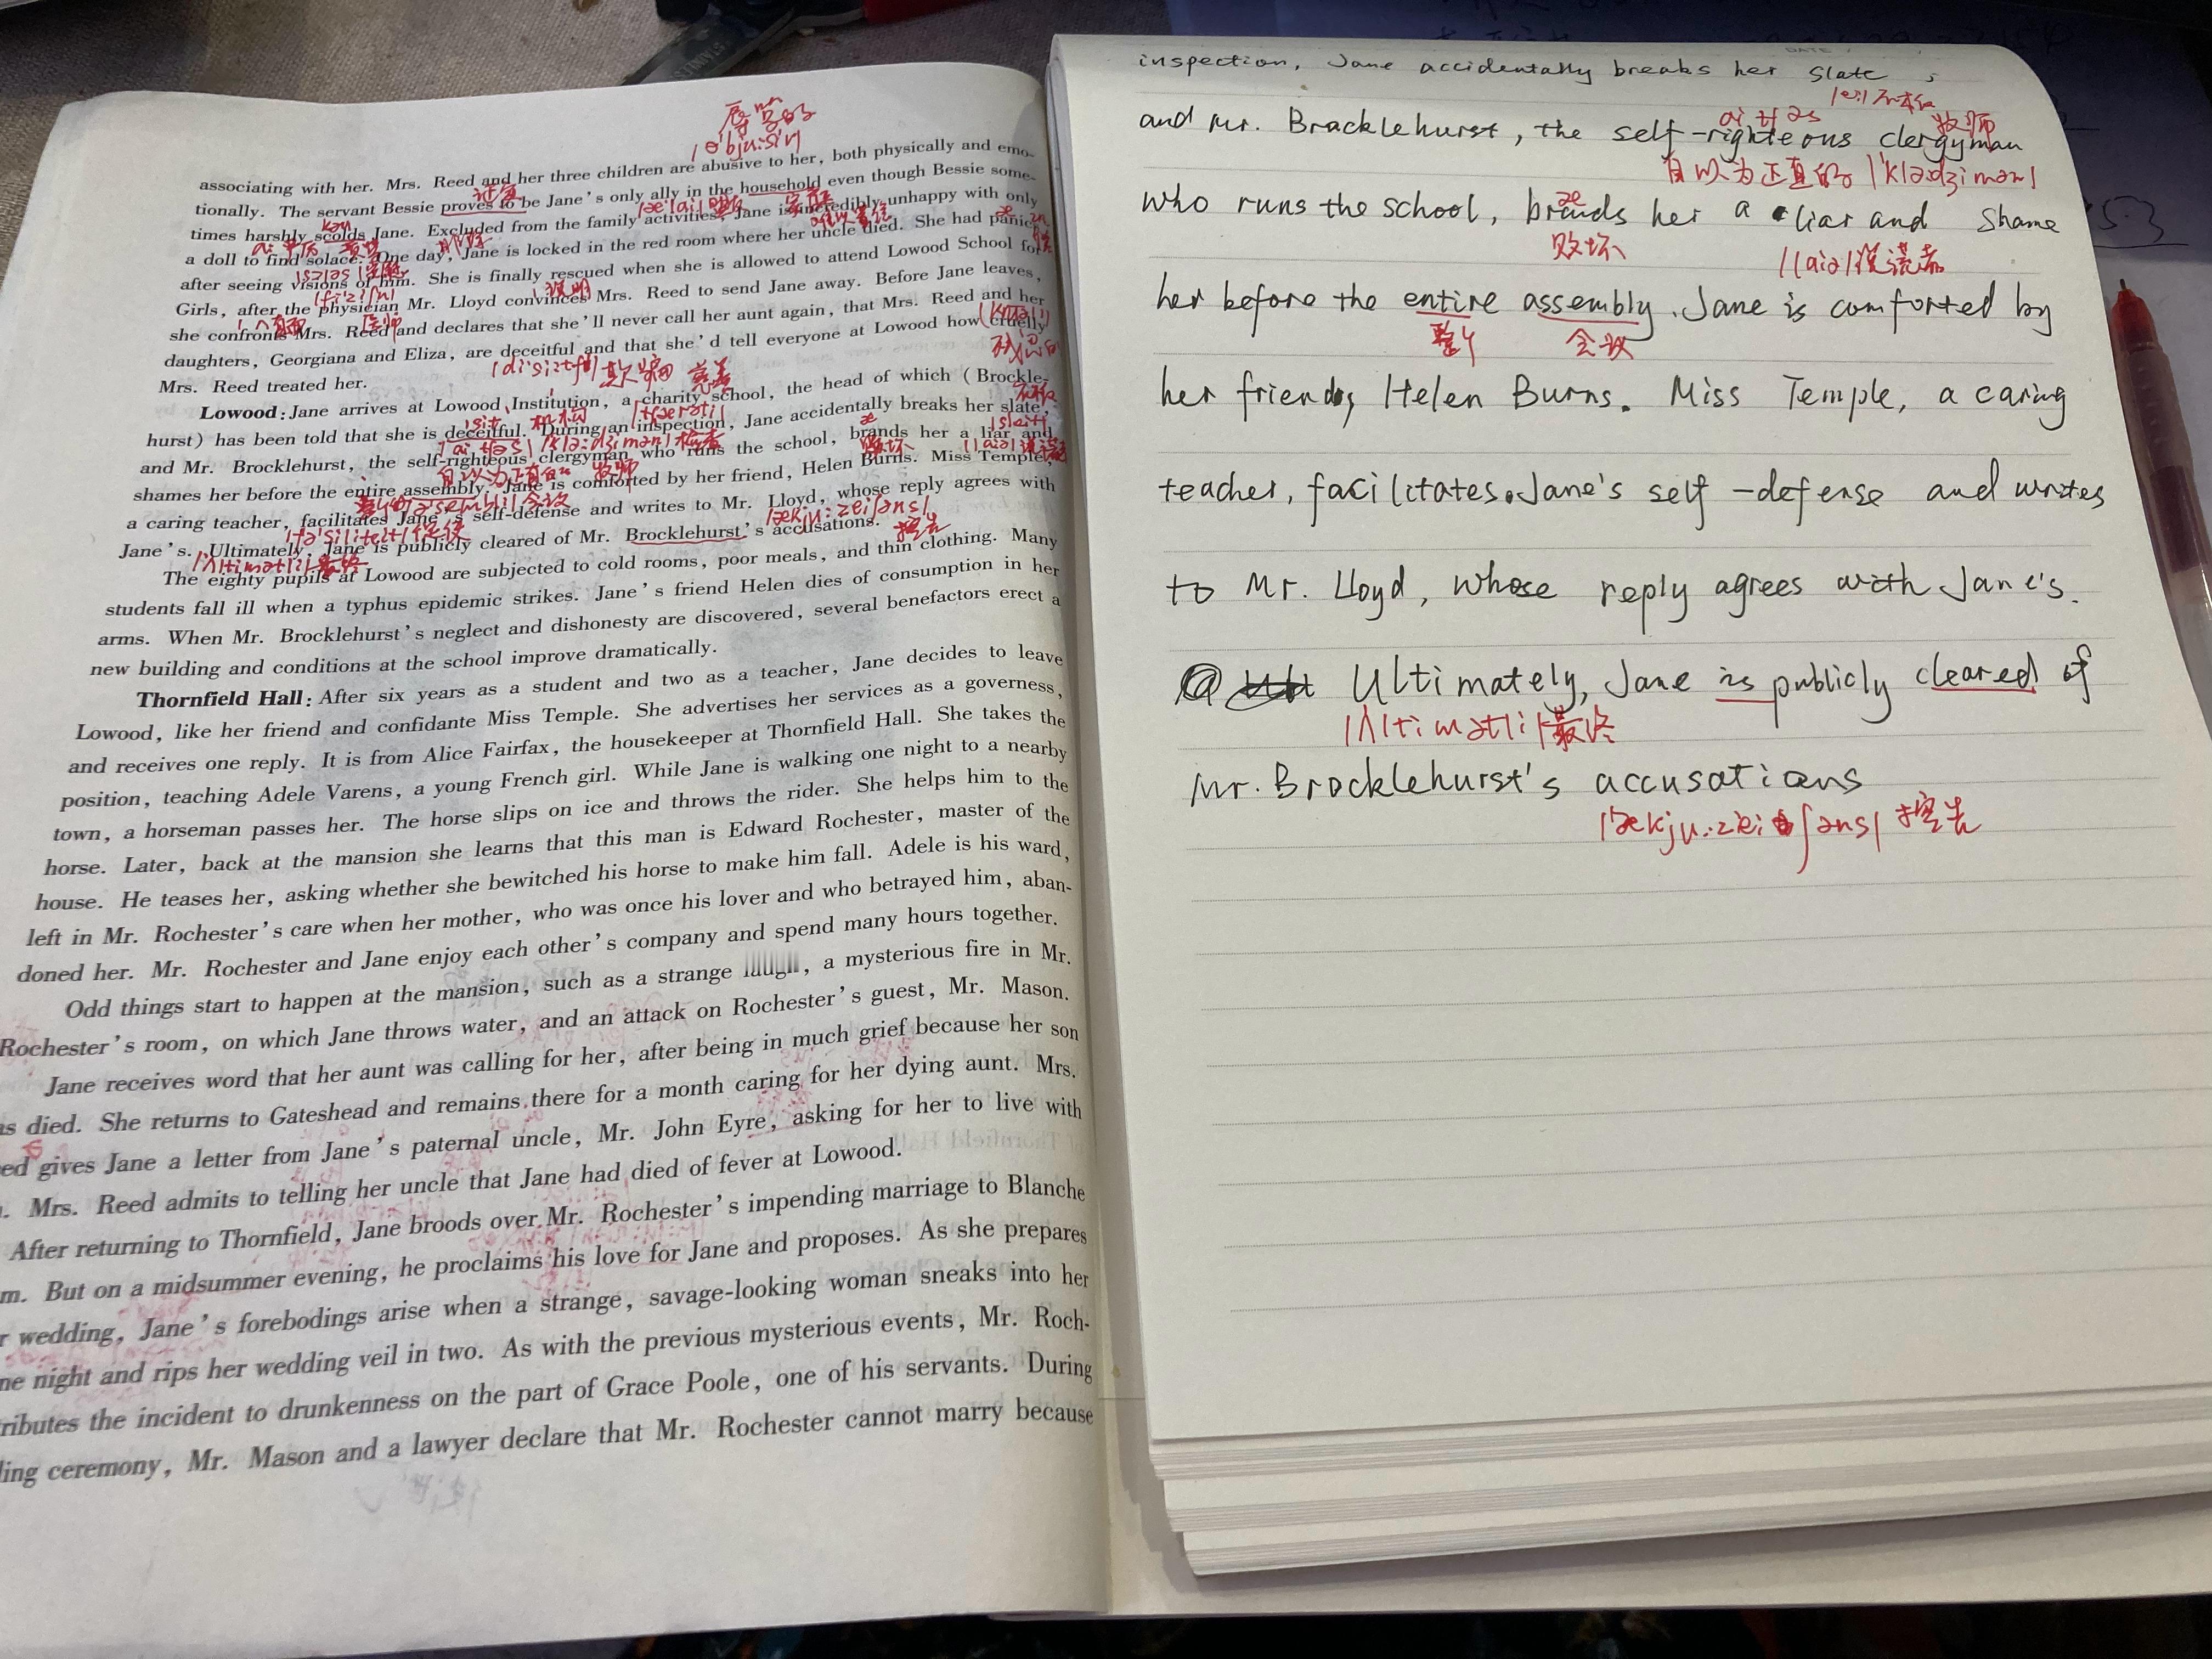 辱骂的
|əˈbjuːsiv|
associating with her. Mrs. Reed and her three children are abusive to her, both physically and emo-
tionally. The servant Bessie proves to be Jane's only ally in the household even though Bessie some-
times harshly scolds Jane. Excluded from the family activities, Jane is incredibly unhappy with only
a doll to find solace. One day, Jane is locked in the red room where her uncle died. She had panic
after seeing visions of him. She is finally rescued when she is allowed to attend Lowood School for
Girls, after the physician Mr. Lloyd convinces Mrs. Reed to send Jane away. Before Jane leaves,
she confronts Mrs. Reed and declares that she'll never call her aunt again, that Mrs. Reed and her
daughters, Georgiana and Eliza, are deceitful and that she'd tell everyone at Lowood how cruelly
Mrs. Reed treated her.
Lowood: Jane arrives at Lowood Institution, a charity school, the head of which (Brockle-
hurst) has been told that she is deceitful. During an inspection, Jane accidentally breaks her slate,
and Mr. Brocklehurst, the self-righteous clergyman who runs the school, brands her a liar and
shames her before the entire assembly. Jane is comforted by her friend, Helen Burns. Miss Temple,
a caring teacher, facilitates Jane's self-defense and writes to Mr. Lloyd, whose reply agrees with
Jane's. Ultimately, Jane is publicly cleared of Mr. Brocklehurst's accusations.
|ʌltimətli| 最终
The eighty pupils at Lowood are subjected to cold rooms, poor meals, and thin clothing. Many
students fall ill when a typhus epidemic strikes. Jane's friend Helen dies of consumption in her
arms. When Mr. Brocklehurst's neglect and dishonesty are discovered, several benefactors erect a
new building and conditions at the school improve dramatically.
Thornfield Hall: After six years as a student and two as a teacher, Jane decides to leave
Lowood, like her friend and confidante Miss Temple. She advertises her services as a governess,
and receives one reply. It is from Alice Fairfax, the housekeeper at Thornfield Hall. She takes the
position, teaching Adele Varens, a young French girl. While Jane is walking one night to a nearby
town, a horseman passes her. The horse slips on ice and throws the rider. She helps him to the
horse. Later, back at the mansion she learns that this man is Edward Rochester, master of the
house. He teases her, asking whether she bewitched his horse to make him fall. Adele is his ward,
left in Mr. Rochester's care when her mother, who was once his lover and who betrayed him, aban-
doned her. Mr. Rochester and Jane enjoy each other's company and spend many hours together.
Odd things start to happen at the mansion, such as a strange laugh, a mysterious fire in Mr.
Rochester's room, on which Jane throws water, and an attack on Rochester's guest, Mr. Mason.
Jane receives word that her aunt was calling for her, after being in much grief because her son
as died. She returns to Gateshead and remains there for a month caring for her dying aunt. Mrs.
ed gives Jane a letter from Jane's paternal uncle, Mr. John Eyre, asking for her to live with
. Mrs. Reed admits to telling her uncle that Jane had died of fever at Lowood.
After returning to Thornfield, Jane broods over Mr. Rochester's impending marriage to Blanche
m. But on a midsummer evening, he proclaims his love for Jane and proposes. As she prepares
r wedding, Jane's forebodings arise when a strange, savage-looking woman sneaks into her
ne night and rips her wedding veil in two. As with the previous mysterious events, Mr. Roch-
tributes the incident to drunkenness on the part of Grace Poole, one of his servants. During
ling ceremony, Mr. Mason and a lawyer declare that Mr. Rochester cannot marry because
DATE
inspection, Jane accidentally breaks her slate,
and Mr. Bracklehurst, the self-righteous clergyman
自以为正直的 |ˈklə:dʒimən|
who runs the school, brands her a liar and shame
败坏 |laiə| 说谎者
her before the entire assembly. Jane is comforted by
整个 会议
her friend, Helen Burns. Miss Temple, a caring
teacher, facilitates Jane's self-defense and writes
to Mr. Lloyd, whose reply agrees with Jane's.
Ultimately, Jane is publicly cleared of
|ʌltimətli| 最终
Mr. Brocklehurst's accusations
|ækju:zeiʃəns| 控告